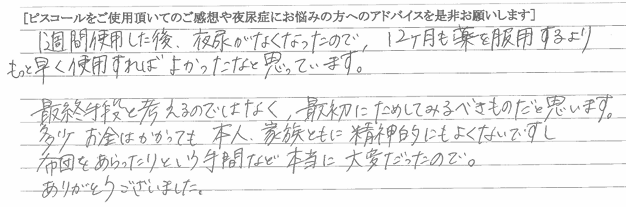 [ピスコールをご使用頂いてのご感想や夜尿症にお悩みの方へのアドバイスを是非お願いします]
1週間使用した後、夜尿がなくなったので、12ヶ月も薬を服用するより
もっと早く使用すればよかったなと思っています。
最終手段と考えるのではなく、最初にためしてみるべきものだと思います。
多少お金はかかっても本人、家族ともに精神的にもよくないですし
布団をあらったりという手間など本当に大変だったので。
ありがとうございました。